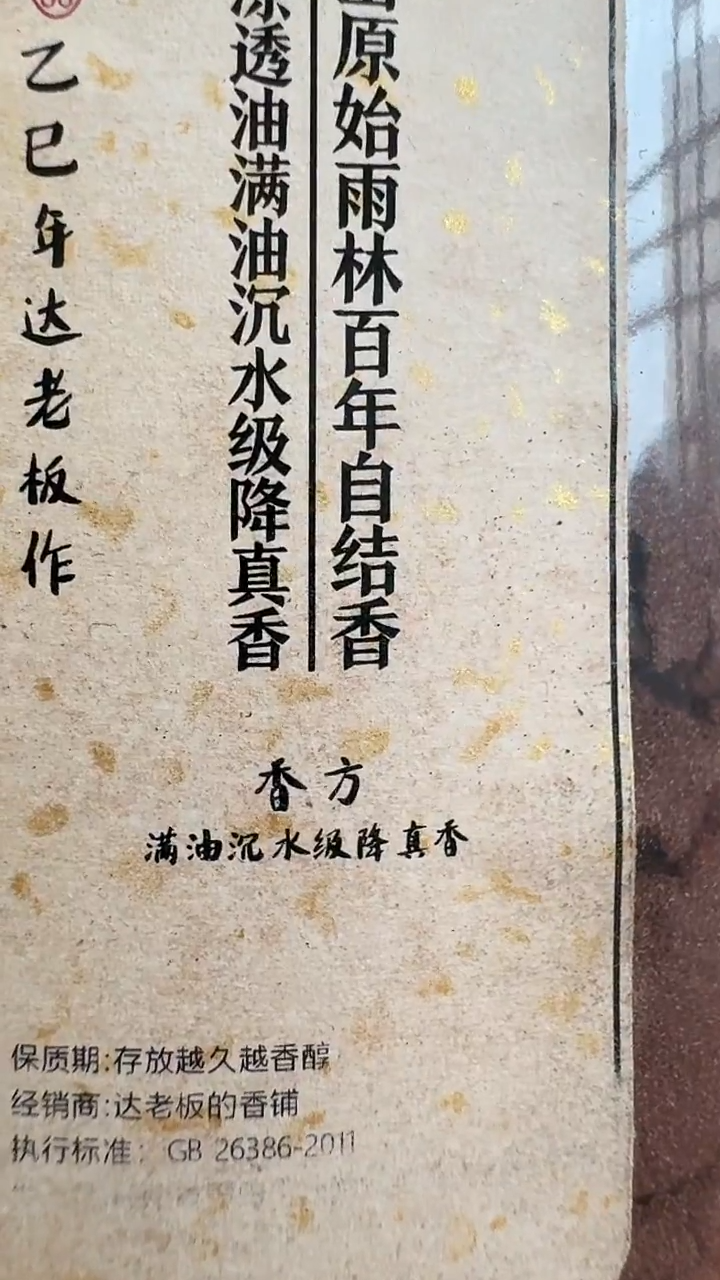 原始雨林百年自结香
透油满油沉水级降真香
乙巳年达老板作
香方
满油沉水级降真香
保质期:存放越久越香醇
经销商:达老板的香铺
执行标准: GB 26386-2011